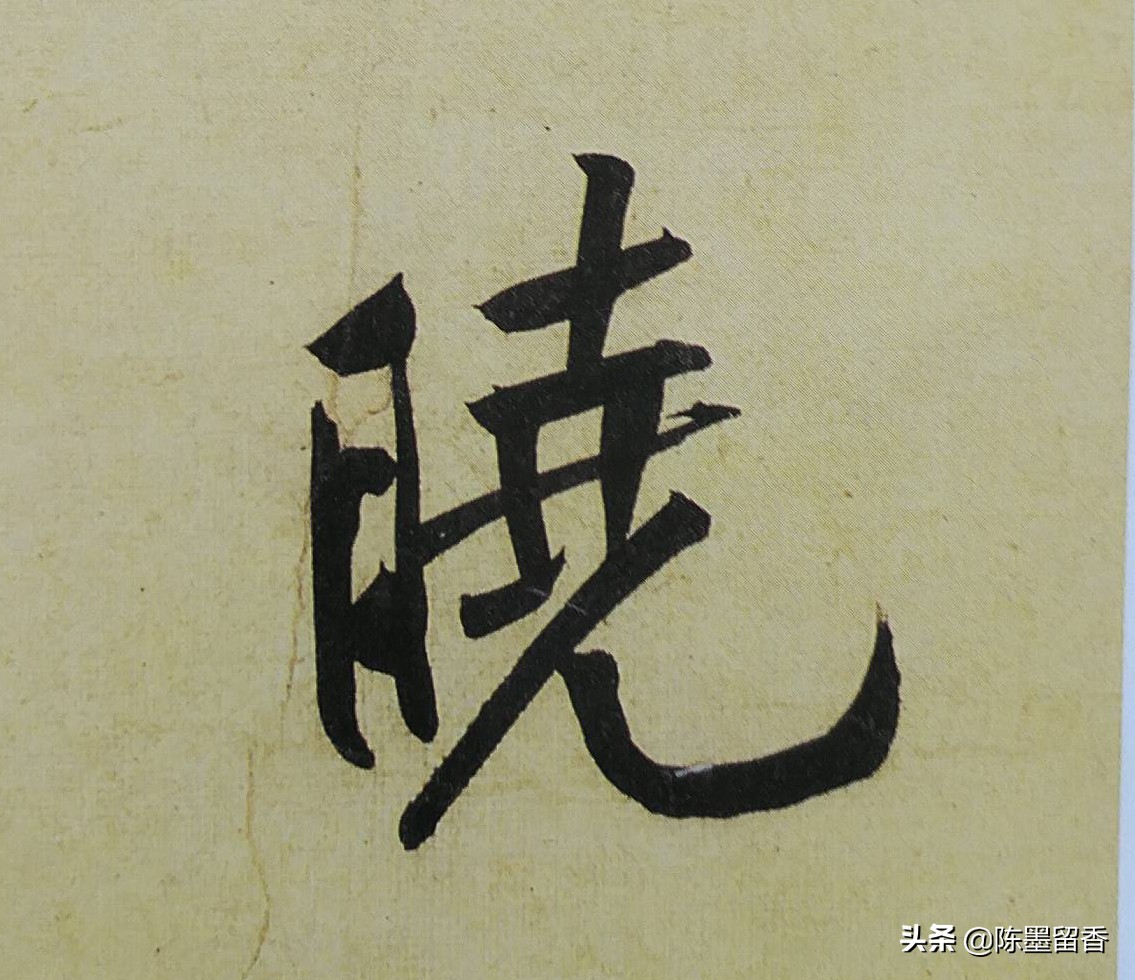 曉
头条 @陈墨留香